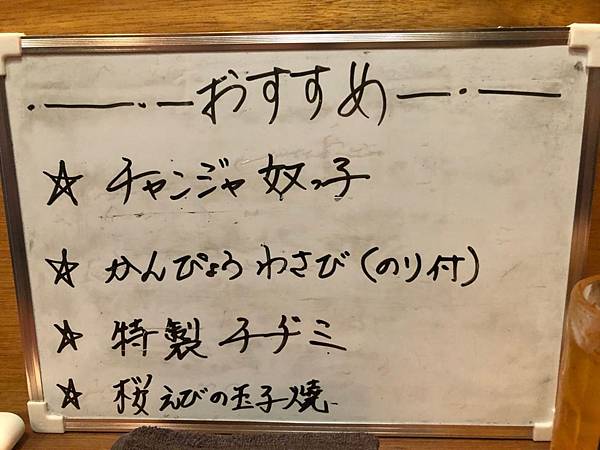 おすすめ
☆ チャンジャ奴っ子
☆ かんぴょうわさび(のり付)
☆ 特製チヂミ
☆ 桜えびの玉子焼